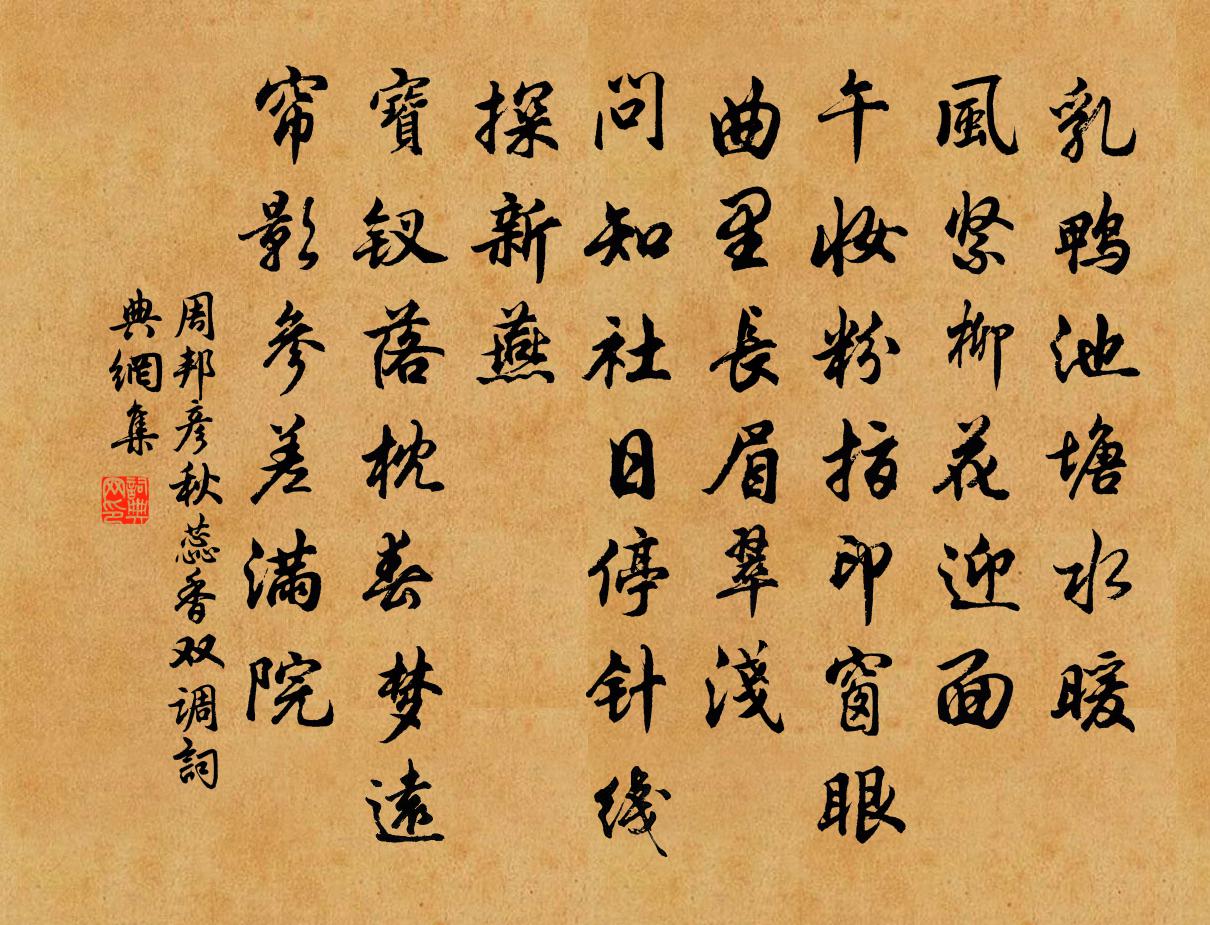 乳鴨池塘水暖
風紧柳花迎面
午妆粉指印窗眼
曲里長眉翠淺
問知社日停针线
探新燕
寶钗落枕春梦遠
帘影參差满院
周邦彦秋蕊香双调詞
典網集
詞典网印